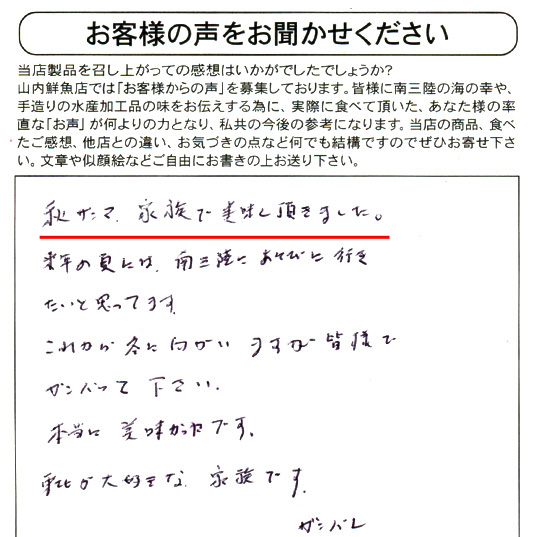 お客様の声をお聞かせください
当店製品を召し上がっての感想はいかがでしたでしょうか?
山内鮮魚店では「お客様からの声」を募集しております。皆様に南三陸の海の幸や、
手造りの水産加工品の味をお伝えする為に、実際に食べて頂いた、あなた様の率
直な「お声」が何よりの力となり、私共の今後の参考になります。当店の商品、食べ
たご感想、他店との違い、お気づきの点など何でも結構ですのでぜひお寄せ下さ
い。文章や似顔絵などご自由にお書きの上お送り下さい。
秋サンマ、家族で美味し頂きました。
来年の夏には、南三陸にあそびに行き
たいと思ってます。
これから冬に向かいますが皆様で
ガンバって下さい。
本当に美味かったです。
が大好きな家族です。
ガンバレ